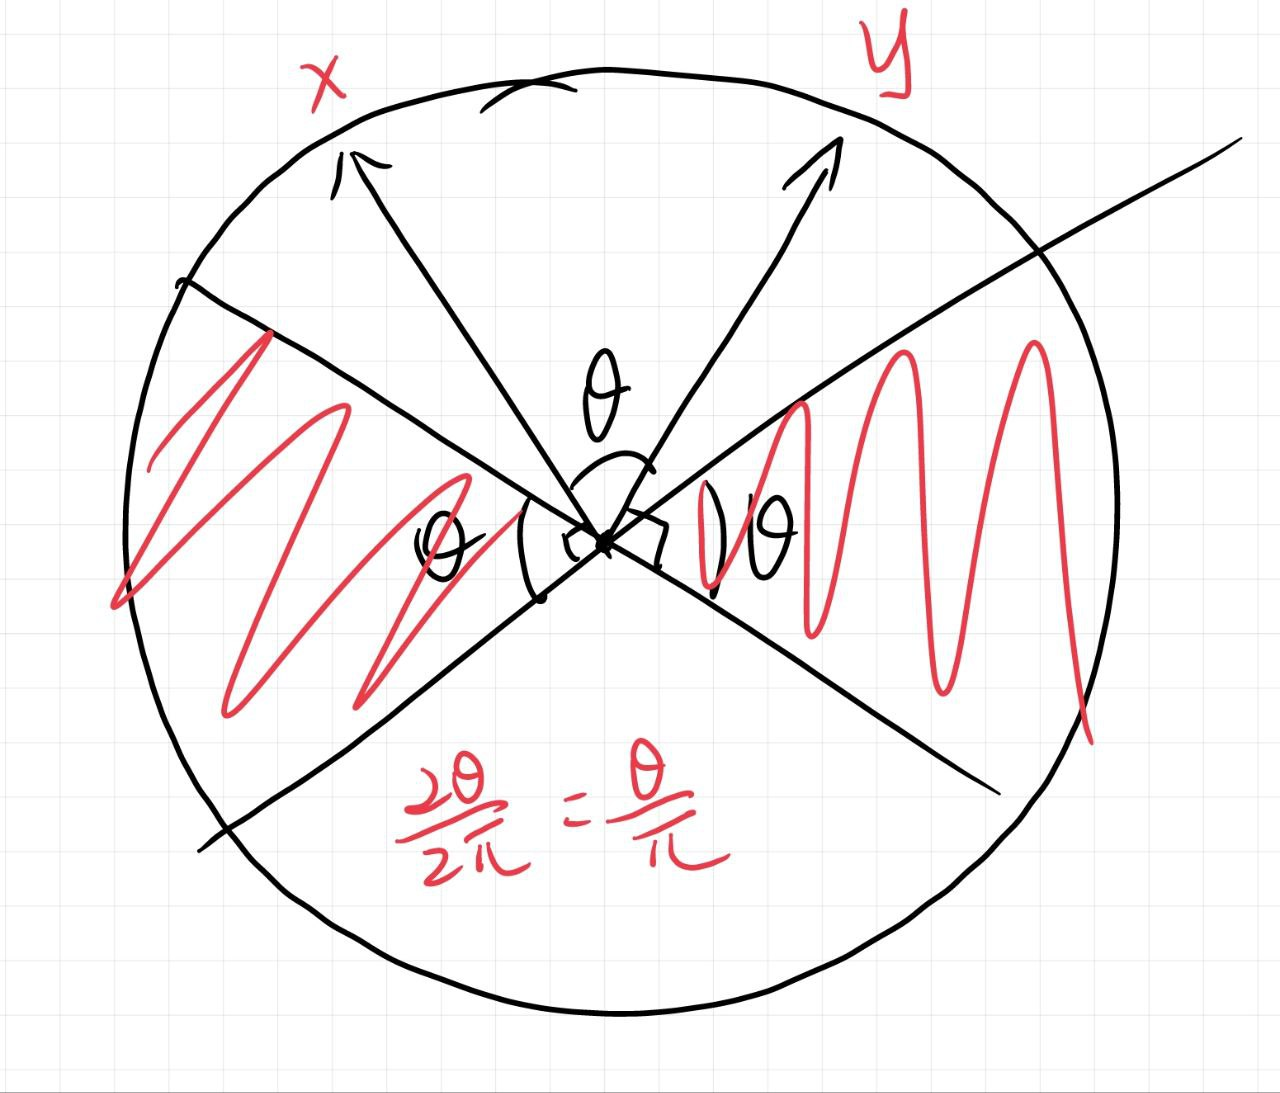 x y
θ
θ θ
2θ/2π = θ/π